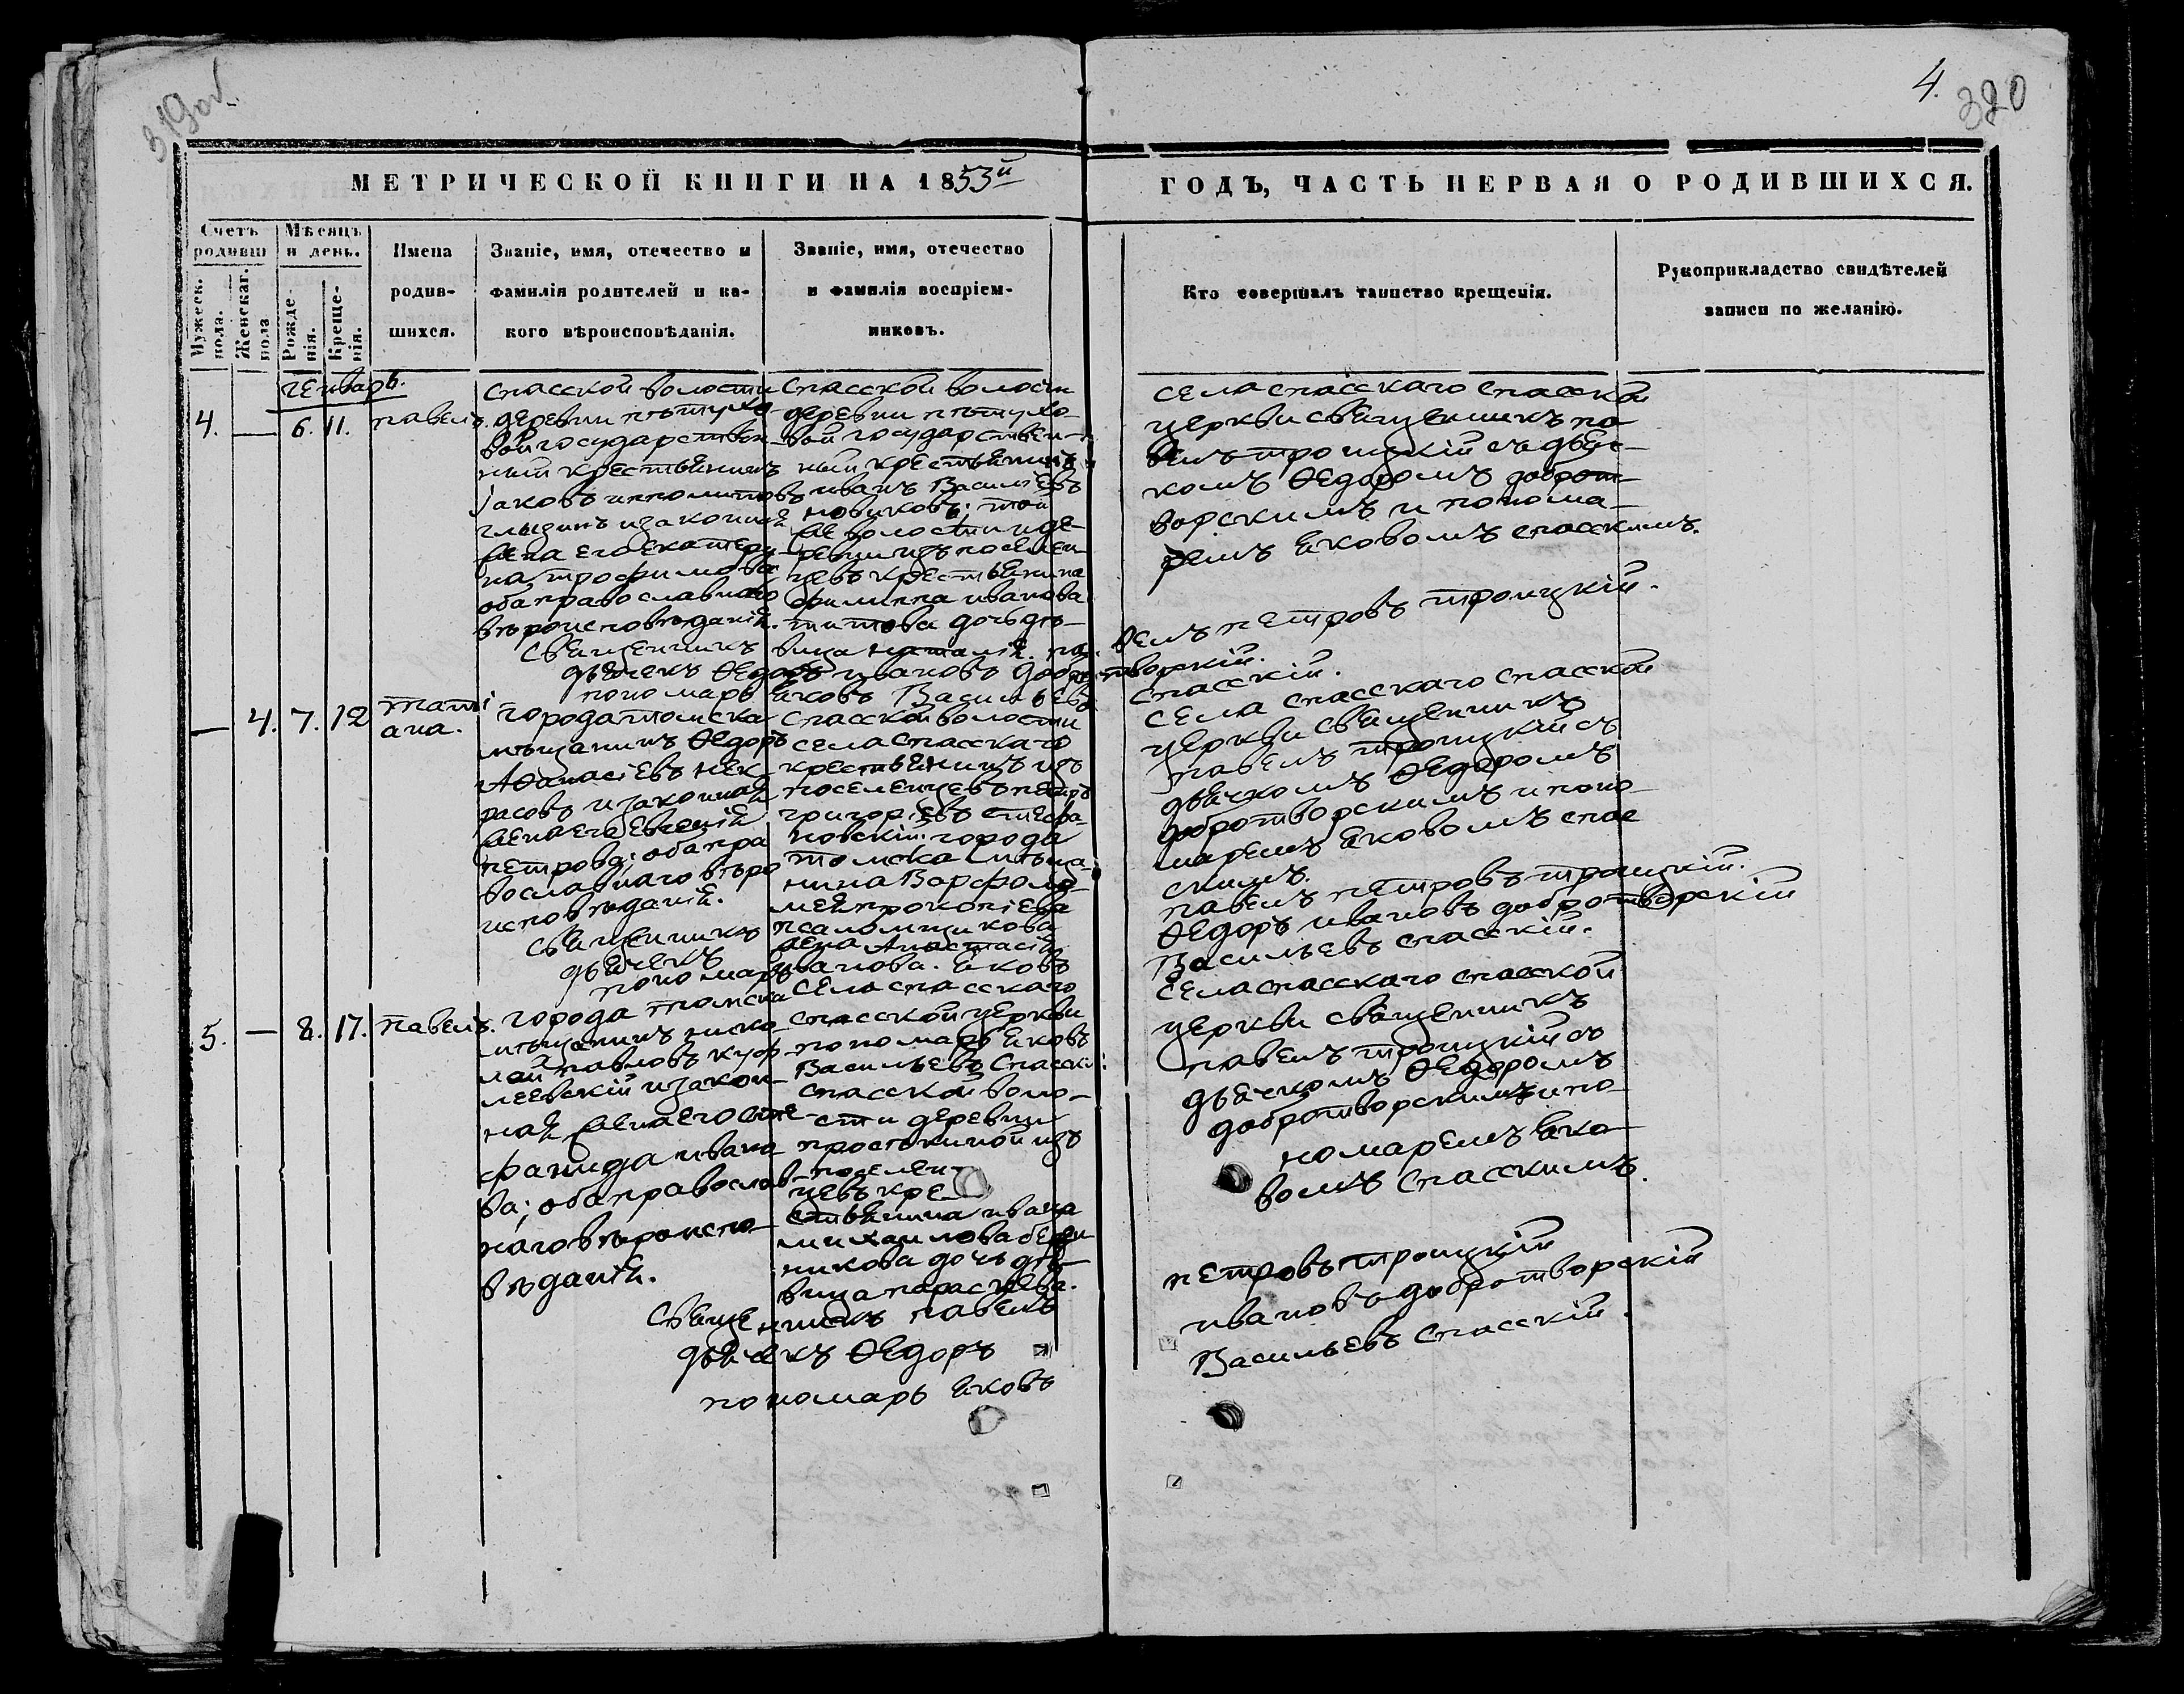 319об.
4.
320
МЕТРИЧЕСКОЙ КНИГИ НА 1853й
ГОДЪ, ЧАСТЬ ПЕРВАЯ О РОДИВШИХСЯ.
Счетъ родивш
Мужеск. пола.
Женскаг. пола
Мѣсяцъ и день.
Рожде-
нія.
Креще-
нія.
Имена
родив-
шихся.
Званіе, имя, отечество и
фамилія родителей и ка-
кого вѣроисповѣданія.
Званіе, имя, отечество
и фамилія воспріем-
никовъ.
Кто совершалъ таинство крещенія.
Рукоприкладство свидѣтелей
записи по желанію.
генварь.
4. — 6. 11. павелъ.
спасской волости
деревни пѣтухо-
вой государствен-
ный крестьянинъ
Іаковъ ипполитовъ
глызинъ и законная
жена его екатери-
на трофимова
оба православнаго
вѣроисповѣданія.
Спасской волости
деревни пѣтухо-
вой государствен-
ный крестьянинъ
иванъ Васильевъ
новиковъ; той
же волости и де-
ревни изъ поселен-
цевъ крестьянина
филиппа иванова
титова дочь дѣ-
вица наталія.
села спасскаго спасской
церкви священникъ па-
велъ троицкій съ дьяч-
комъ Ѳедоромъ доброт-
ворскимъ и понома-
ремъ яковомъ спасскимъ.
Священникъ па-велъ петровъ троицкій.
дьячекъ Ѳедоръ ивановъ добротворскій.
пономарь яковъ Васильевъ спасскій.
— 4. 7. 12 таті
ана.
города томска
мѣщанинъ Ѳедоръ
Аѳанасіевъ нек-
расовъ и законная
жена его евгенія
петрова; оба пра
вославнаго вѣро
исповѣданія.
спасской волости
села спасскаго
крестьянинъ изъ
поселенцевъ петръ
григорьевъ стефа-
новскій: города
томска мѣща-
нина Варфоло-
мея прокопіева
псаломщикова
жена Анастасія
иванова.
села спасскаго спасской
церкви священникъ
павелъ троицкій съ
дьячкомъ Ѳедоромъ
добротворскимъ и поно-
маремъ яковомъ спас
скимъ.
Священникъ павелъ петровъ троицкій.
дьячекъ Ѳедоръ ивановъ добротворскій
пономарь яковъ Васильевъ спасскій.
5. — 8. 17. павелъ.
города томска
мѣщанинъ нико-
лай павловъ
и закон-
ная жена его сте-
фанида ивано
ва; оба православ-
наго вѣроиспо-
вѣданія.
села спасскаго
спасской церкви
пономарь яковъ
Васильевъ Спасскій:
спасской воло-
сти деревни
изъ
поселен-
цевъ кре-
стьянина ивана
михаилова
дочь дѣ-
вица параскева.
села спасскаго спасской
церкви священникъ
павелъ троицкій съ
дьячкомъ Ѳедоромъ
добротворскимъ и по-
номаремъ яко-
вомъ спасскимъ.
Священникъ павелъ петровъ троицкій
дьячекъ Ѳедоръ ивановъ добротворскій
пономарь яковъ Васильевъ Спасскій.